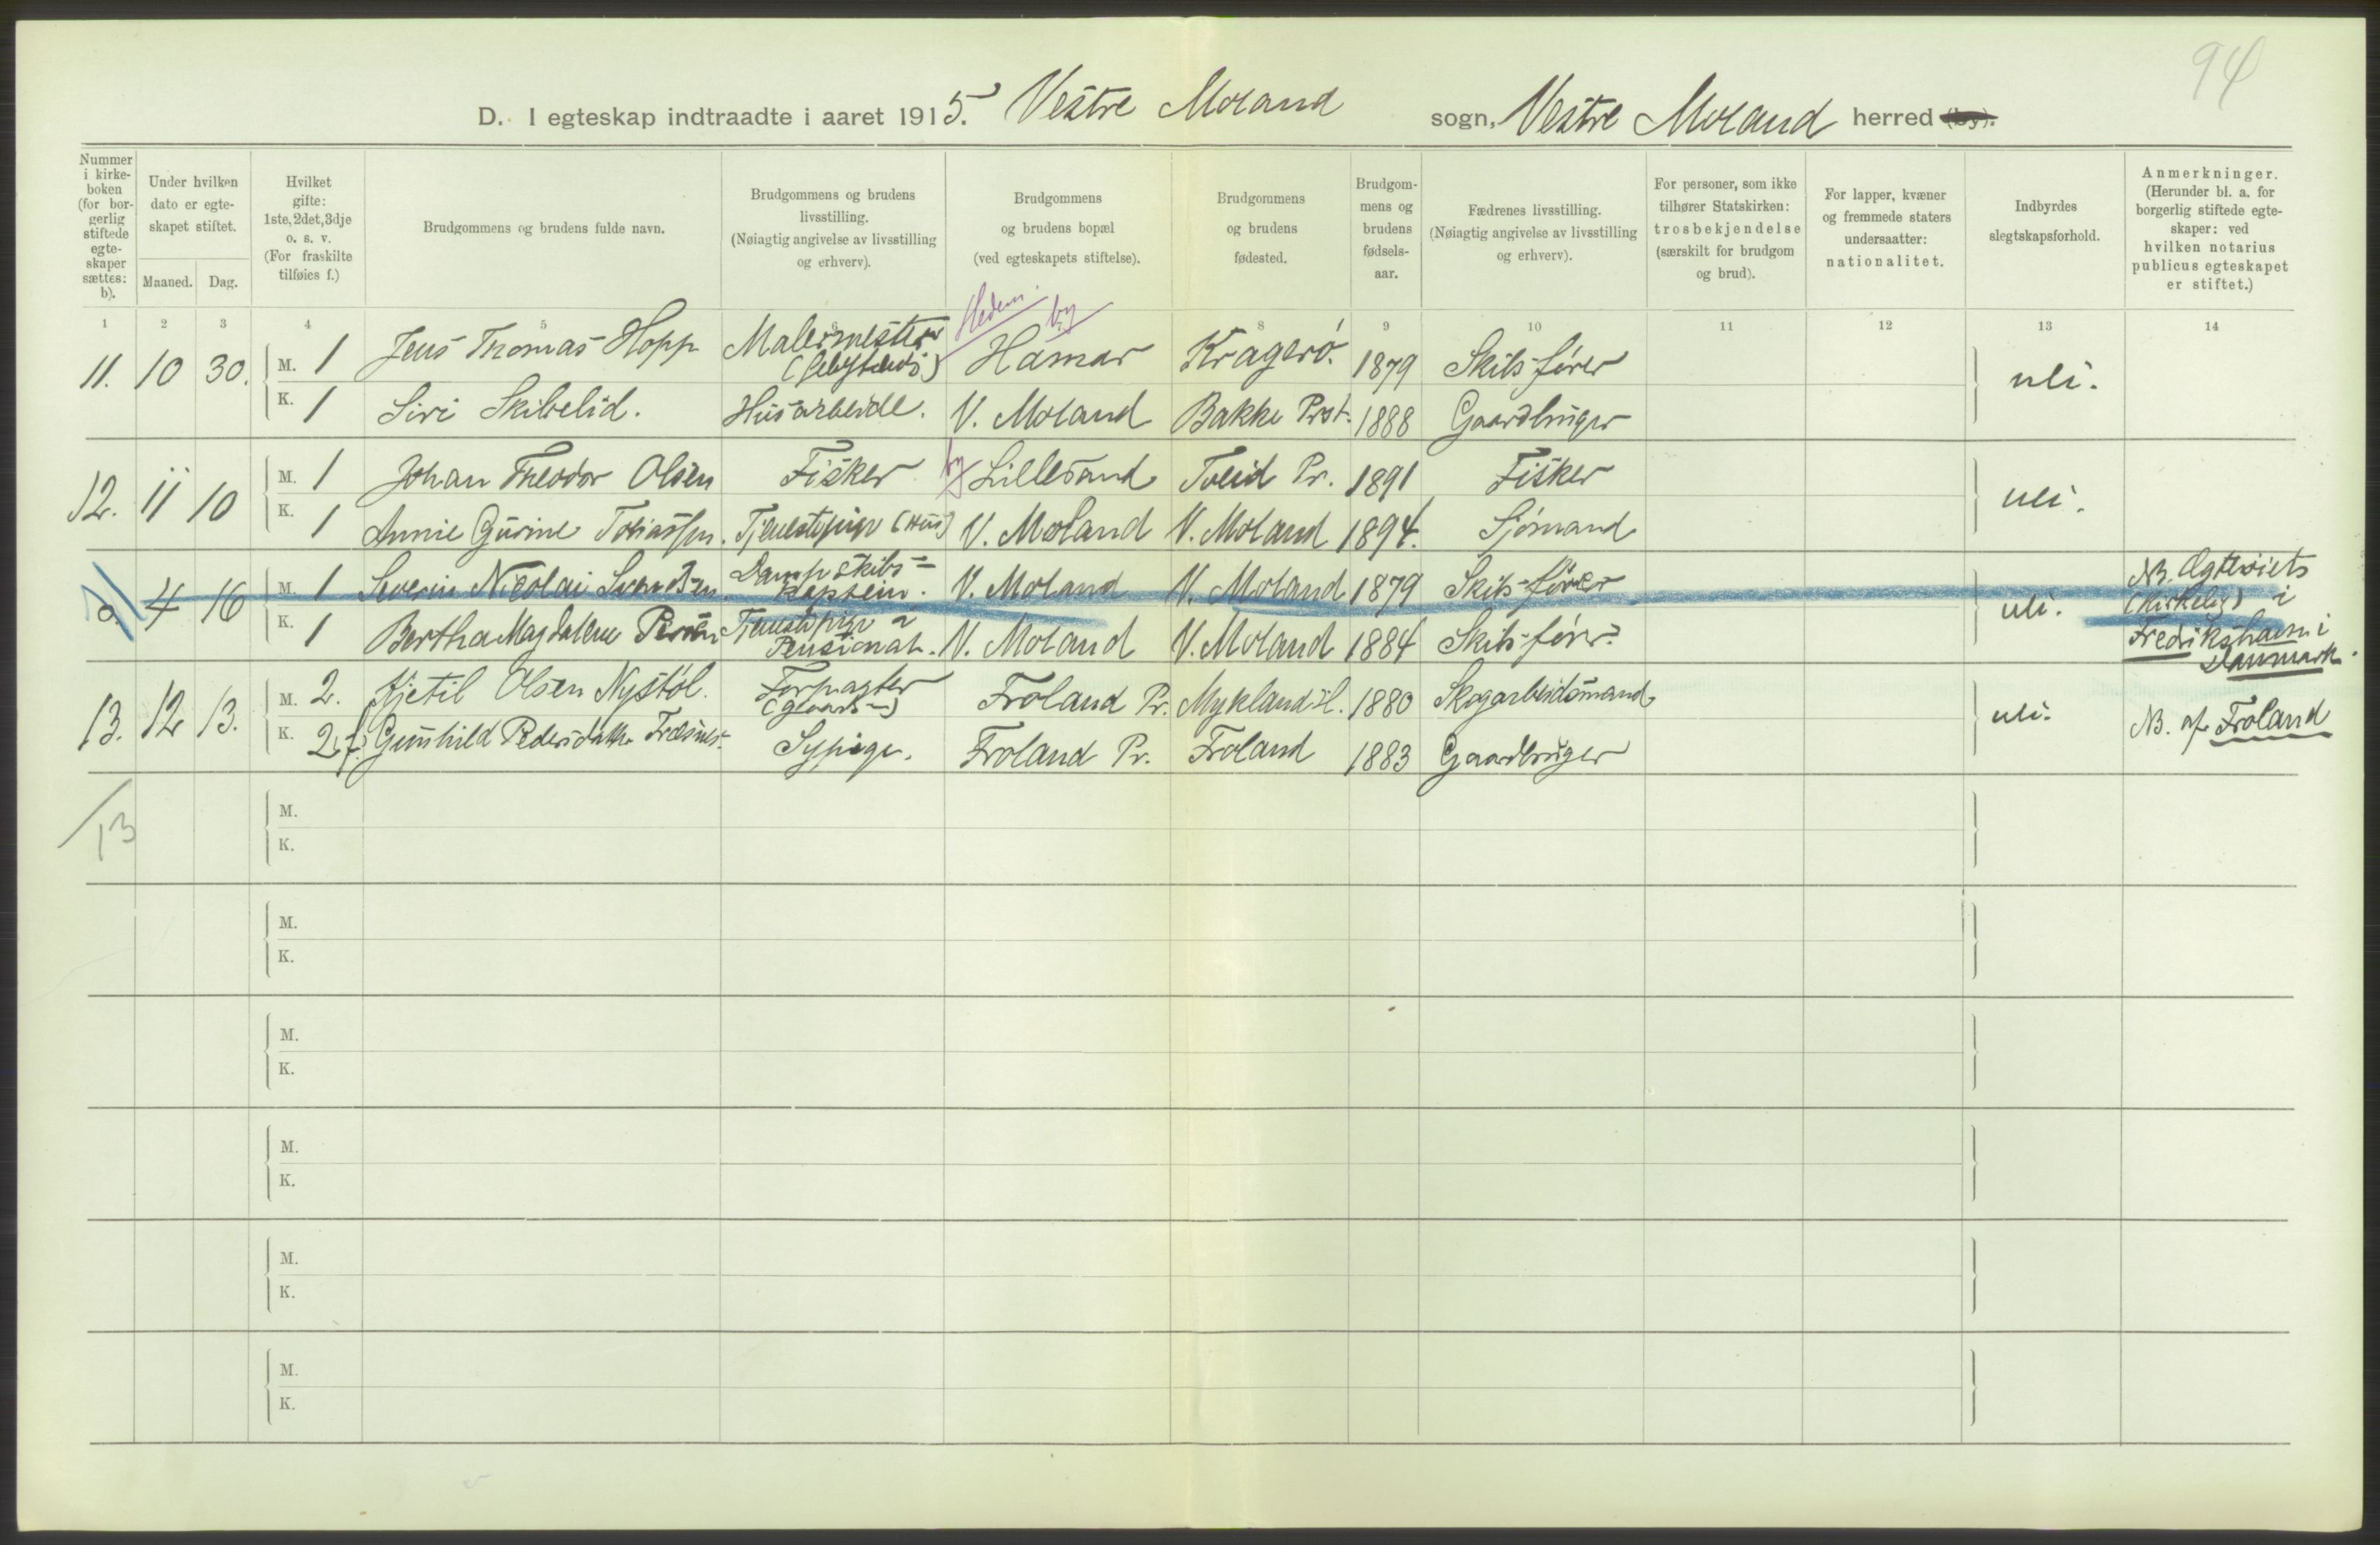 94
D. I egteskap indtraadte i aaret 1915. Vestre Moland sogn, Vestre Moland herred (by).
Nummer i kirkeboken (for borgerlig stiftede egteskaper sættes: b).
Under hvilken dato er egteskapet stiftet.
Maaned. Dag.
Hvilket gifte: 1ste, 2det, 3dje o. s. v. (For fraskilte tilføies f.)
Brudgommens og brudens fulde navn.
Brudgommens og brudens livsstilling. (Nøiagtig angivelse av livsstilling og erhverv).
Brudgommens og brudens bopæl (ved egteskapets stiftelse).
Brudgommens og brudens fødested.
Brudgommens og brudens fødselsaar.
Fædrenes livsstilling. (Nøiagtig angivelse av livsstilling og erhverv).
For personer, som ikke tilhører Statskirken: trosbekjendelse (særskilt for brudgom og brud).
For lapper, kvæner og fremmede staters undersaatter: nationalitet.
Indbyrdes slegtskapsforhold.
Anmerkninger. (Herunder bl. a. for borgerlig stiftede egteskaper: ved hvilken notarius publicus egteskapet er stiftet.)
1 2 3 4 5 8 9 10 11 12 13 14
Hedem. by
11. 10 30. M. 1 Jens Thomas Hopp Malermester Hamar Kragerø. 1879 Skibsfører uli.
K. 1 Siri Skibelid. Husarbeide. V. Moland Bakke Prst. 1888 Gaardbruger
12. 11 10 M. 1 Johan Theodor Olsen Fisker by Lillesand Tveid Pr. 1891 Fisker uli.
K. 1 Annie Gurine Tobiassen. Tjenestepige (Hus) V. Moland V. Moland 1894. Sjømand
4 16 M. 1 Severin Nicolai Svendsen. Dampskibs-kaptein. V. Moland V. Moland 1879 Skibsfører uli. NB. Egteviets (kirkelig) i Fredrikshavn i Danmark.
K. 1 Bertha Magdalene Tjenestepige Pensionat. V. Moland V. Moland 1884 Skibsfører
13. 12 13. M. 2. Kjetil Olsen Nystøl. Forpagter (gaard-) Froland Pr. Mykland H. 1880 Skogarbeidsmand uli. NB. af Froland
K. 2, f. Gunhild Pedersdatter Sypige. Froland Pr. Froland 1883 Gaardbruger
13
M.
K.
M.
K.
M.
K.
M.
K.
M.
K.
M.
K.